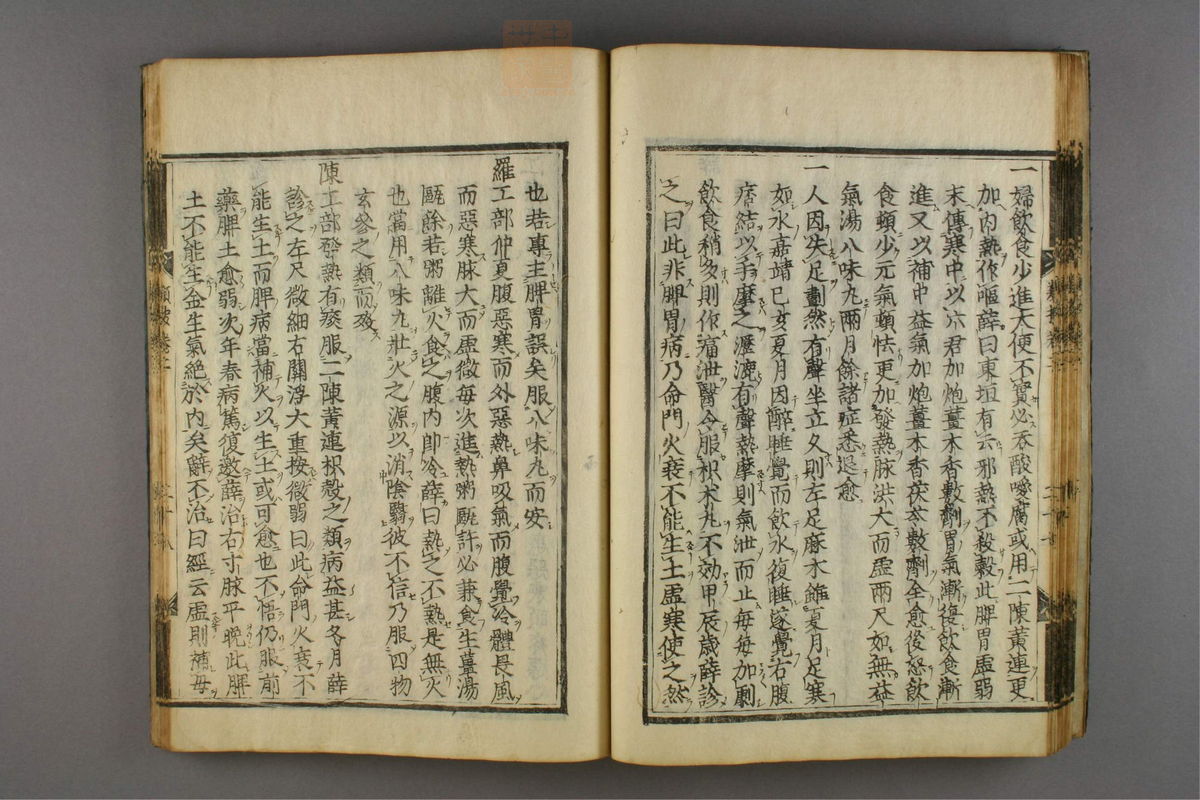 一婦飲食少進大便不實必吞酸噯腐或用二陳黃連更
加内熱作嘔薛曰東垣有云邪熱不殺穀此脾胃虛弱
末傳寒中以六君加炮薑木香數劑胃氣漸復飲食漸
進又以補中益氣加炮薑木香茯苓數劑全愈後怒飲
食頓少元氣頓怯更加發熱脉洪大而虛兩尺如無益
氣湯八味丸兩月餘諸症悉退愈
一人因失足劃然有聲坐立久則左足麻木雖夏月足寒
如氷嘉靖己亥夏月因醉睡覺而飲水復睡遂覺右腹
痞結以手摩之瀝漉有聲熱摩則氣泄而止每每加劇
飲食稍多則作痛泄醫令服枳朮丸不効甲辰歲薛診
之曰此非脾胃病乃命門火衰不能生土虛寒使之然
也若專主脾胃誤矣服八味丸而安
羅工部仲夏腹惡寒而外惡熱鼻吸氣而腹覺冷體畏風
而惡寒脉大而虛微每次進熱粥甌許必兼食生薑湯
甌餘若粥離火食之腹内即冷薛曰熱之不熱是無火
也當用八味丸壯火之源以消陰翳彼不信乃服四物
玄參之類而殁
陳工部發熱有痰服二陳黃連枳殼之類病益甚冬月薛
診之左尺微細右關浮大重按微弱曰此命門火衰不
能生土而脾病當補火以生土或可愈也不悟仍服前
藥脾土愈弱次年春病篤復邀薛治右寸脉平晩此脾
土不能生金生氣絶於内矣辭不治曰經云虛則補母